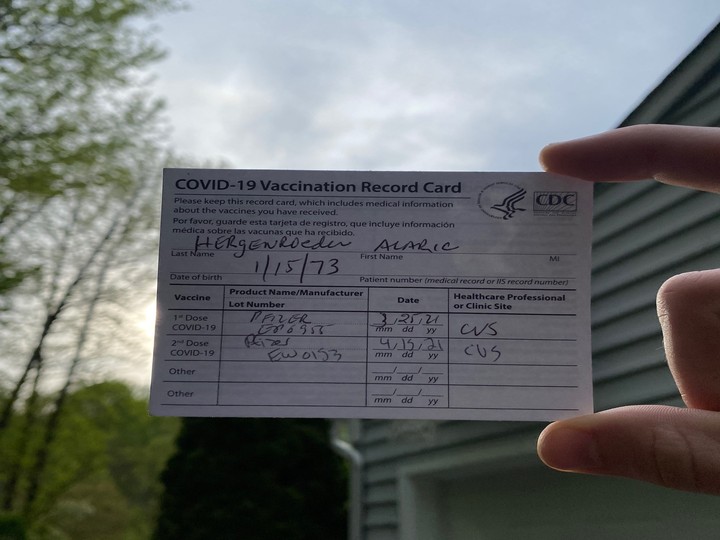 COVID-19 Vaccination Record Card
CDC
Please keep this record card, which includes medical information
about the vaccines you have received.
Por favor, guarde esta tarjeta de registro, que incluye información
médica sobre las vacunas que ha recibido.
HERGENROEDER ALARIC
Last Name First Name MI
1/15/73
Date of birth Patient number (medical record or IIS record number)
Vaccine Product Name/Manufacturer Date Healthcare Professional
Lot Number or Clinic Site
1st Dose PFIZER 3/25/21
COVID-19 mm dd yy CVS
2nd Dose Pfizer 4/15/21
COVID-19 EW0153 mm dd yy CVS
Other mm dd yy
Other mm dd yy